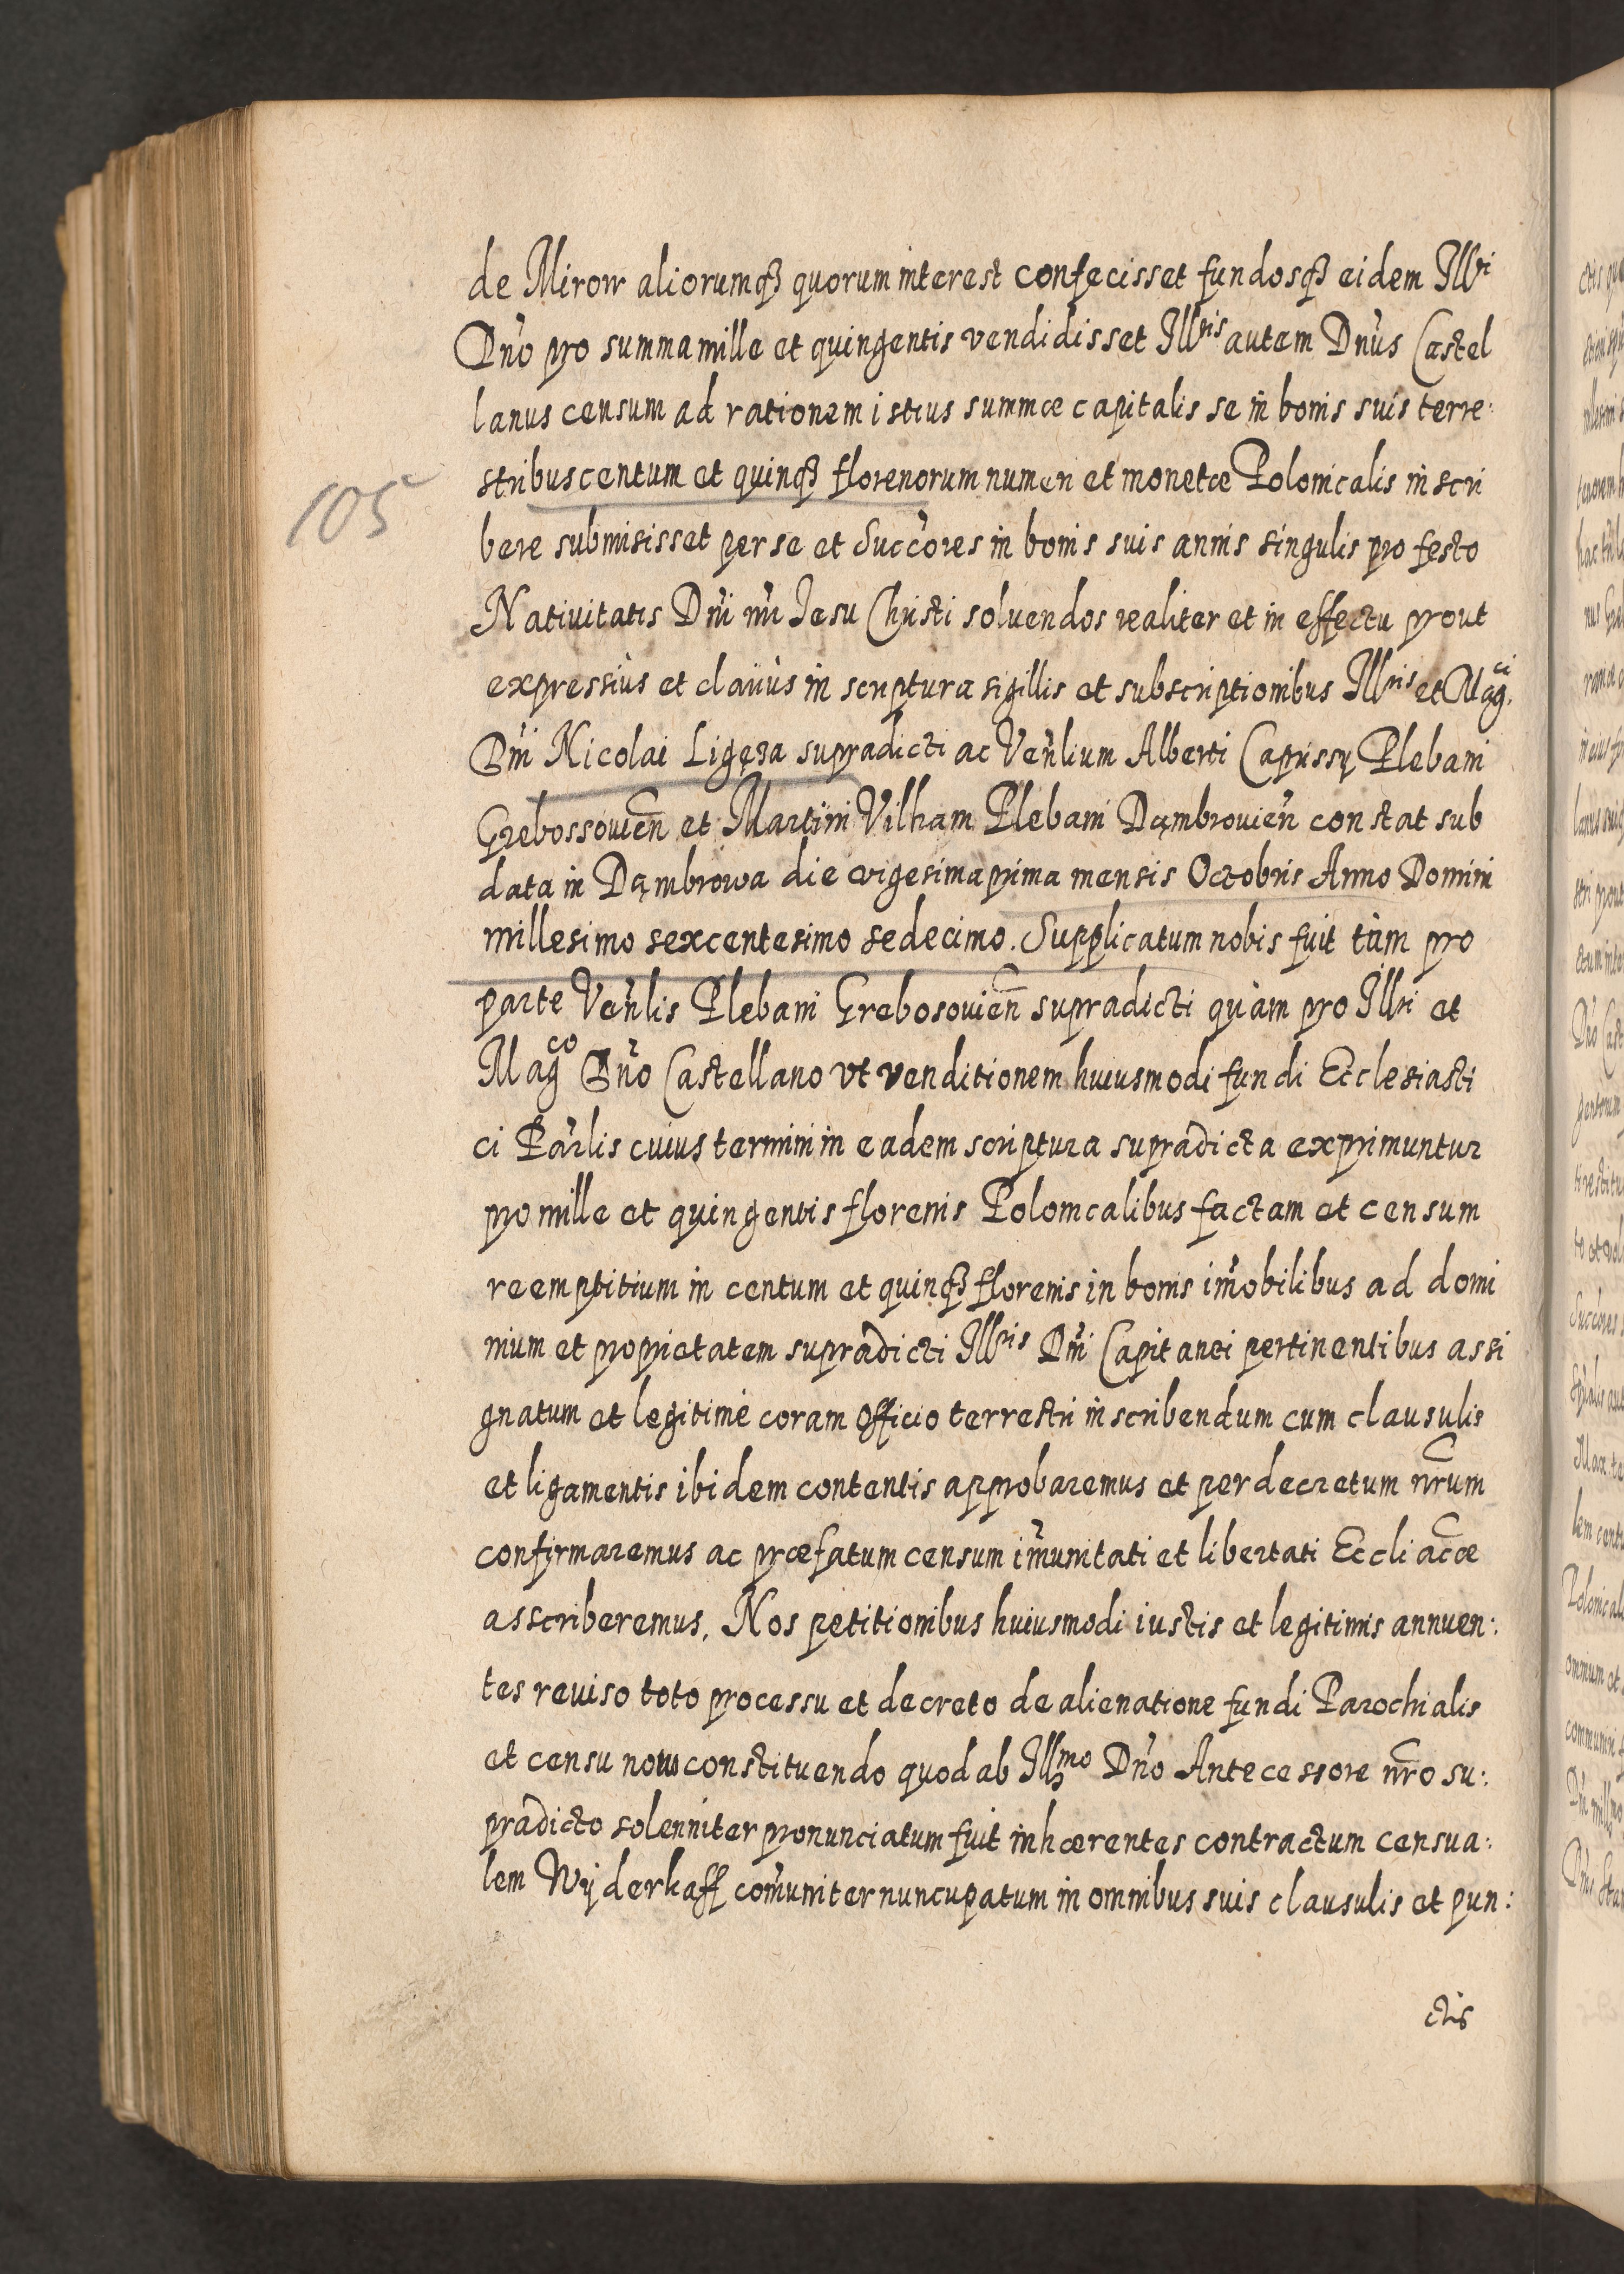 de Mirow aliorumq₃ quorum interest confecisset fundosq₃ eidem Illri
Dn̄o pro summa mille et quingentis vendidisset Illris autem Dn̄us Castel
lanus censum ad rationem istius summæ capitalis se in bonis suis terre:
stribus centum et quinq₃ florenorum numeri et monetæ Polonicalis inscri
105
bere submisisset per se et Succ̄ores in bonis suis annis singulis pro festo
Nativitatis Dn̄i nr̄i Jesu Christi soluendos realiter et in effectu prout
expressiùs et clariùs in scriptura sigillis et subscriptionibus Illris et Magci
Dn̄i Nicolai Ligęza supradicti ac Ven̄lium Alberti Caprissy Plebani
Grebossouien̄ et Martini Vilham Plebani Dąmbrouien̄ constat sub
data in Dąmbrowa die vigesima prima mensis Octobris Anno Domini
millesimo sexcentesimo sedecimo. Supplicatum nobis fuit tùm pro
parte Ven̄lis Plebani Grebosouien̄ supradicti quàm pro Illri et
Magco Dn̄o Castellano vt venditionem huiusmodi fundi Ecclesiasti
ci Par̄lis cuius termini in eadem scriptura supradicta exprimuntur
pro mille et quingentis florenis Polonicalibus factam et censum
reemptitium in centum et quinq₃ florenis in bonis im̄obilibus ad domi
nium et proprietatem supradicti Illris Dn̄i Capitanei pertinentibus assi
gnatum et legitimè coram Officio terrestri inscribendum cum clausulis
et ligamentis ibidem contentis approbaremus et per decretum nr̄um
confirmaremus ac præfatum censum im̄unitati et libertati Eccliacæ
asscriberemus. Nos petitionibus huiusmodi iustis et legitimis annuen:
tes reuiso toto processu et decreto de alienatione fundi Parochialis
et censu nouo constituendo quod ab Illmo Dn̄o Antecessore nr̄o su:
pradicto solenniter pronunciatum fuit inhærentes contractum censua:
lem Wyderkaff com̄uniter nuncupatum in omnibus suis clausulis et pun:
ctis